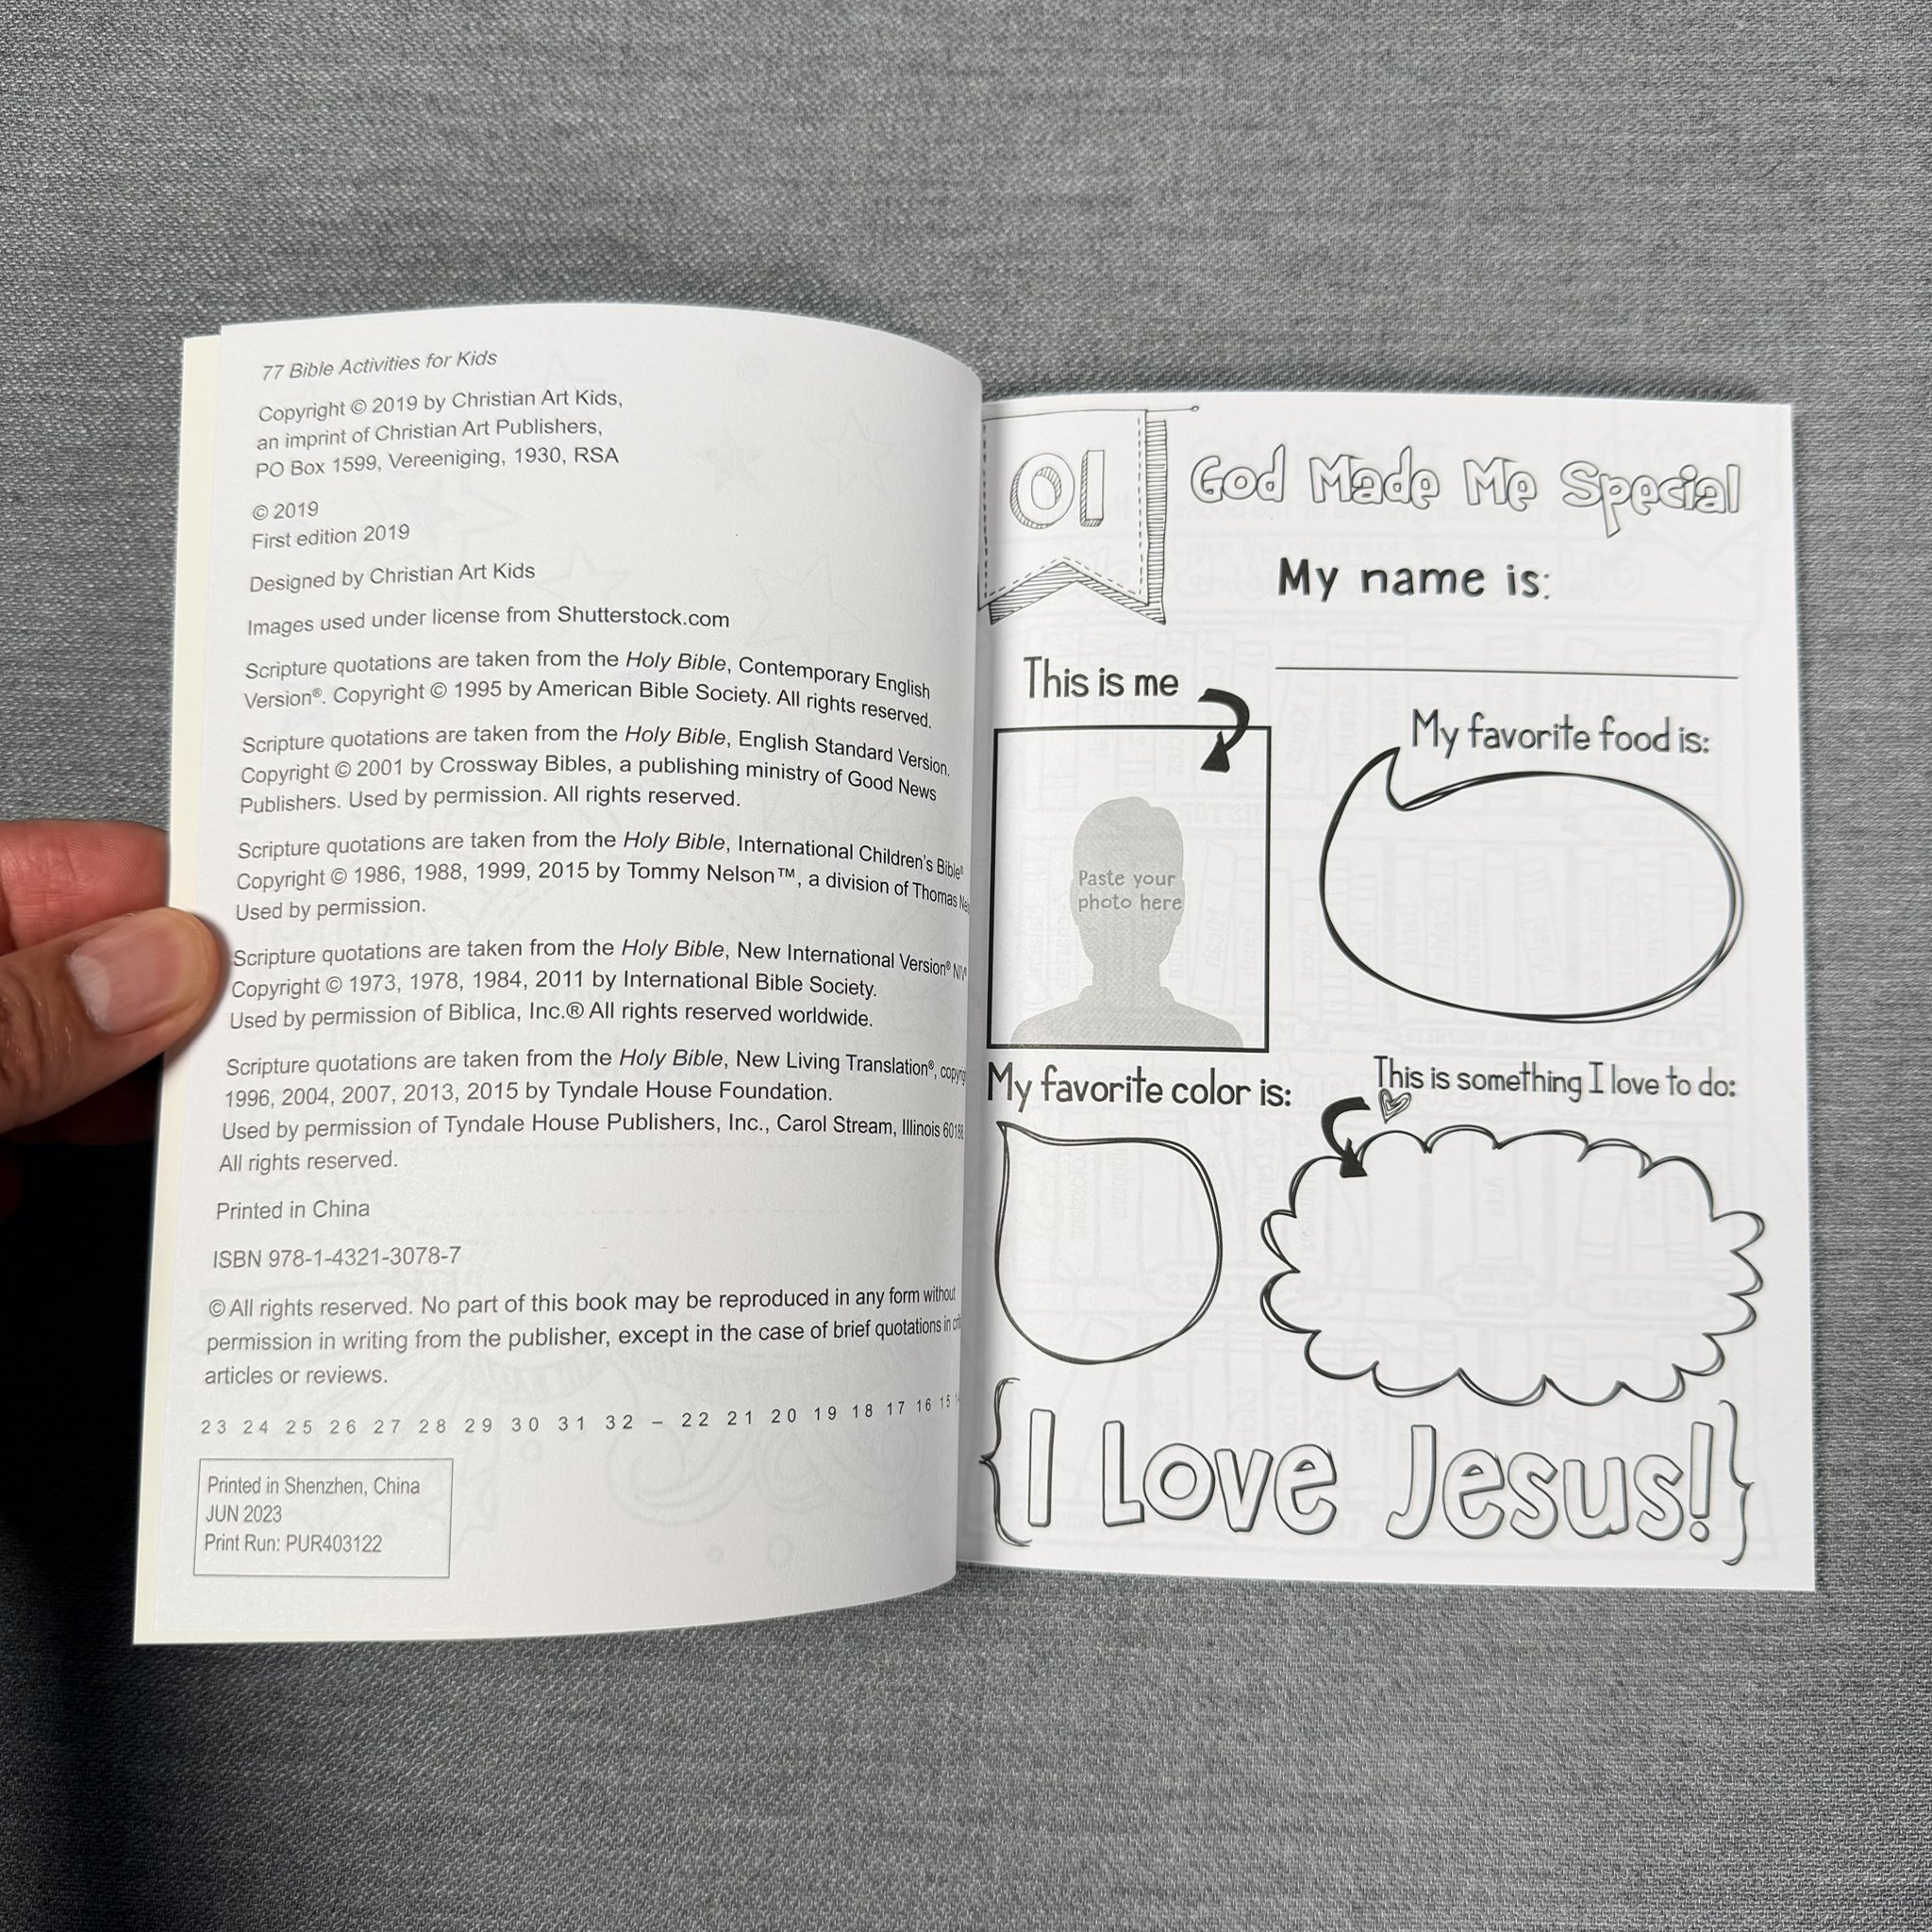 77 Bible Activities for Kids
Copyright © 2019 by Christian Art Kids,
an imprint of Christian Art Publishers,
PO Box 1599, Vereeniging, 1930, RSA
© 2019
First edition 2019
Designed by Christian Art Kids
Images used under license from Shutterstock.com
Scripture quotations are taken from the Holy Bible, Contemporary English
Version®. Copyright © 1995 by American Bible Society. All rights reserved.
Scripture quotations are taken from the Holy Bible, English Standard Version.
Copyright © 2001 by Crossway Bibles, a publishing ministry of Good News
Publishers. Used by permission. All rights reserved.
Scripture quotations are taken from the Holy Bible, International Children's Bible®
Copyright © 1986, 1988, 1999, 2015 by Tommy Nelson™, a division of Thomas
Used by permission.
Scripture quotations are taken from the Holy Bible, New International Version® NIV
Copyright © 1973, 1978, 1984, 2011 by International Bible Society.
Used by permission of Biblica, Inc.® All rights reserved worldwide.
Scripture quotations are taken from the Holy Bible, New Living Translation®,
1996, 2004, 2007, 2013, 2015 by Tyndale House Foundation.
Used by permission of Tyndale House Publishers, Inc., Carol Stream, Illinois 60188
All rights reserved.
Printed in China
ISBN 978-1-4321-3078-7
© All rights reserved. No part of this book may be reproduced in any form without
permission in writing from the publisher, except in the case of brief quotations in
articles or reviews.
23 24 25 26 27 28 29 30 31 32 – 22 21 20 19 18 17 16 15
Printed in Shenzhen, China
JUN 2023
Print Run: PUR403122
01
God Made Me Special
My name is:
This is me
My favorite food is:
Paste your
photo here
My favorite color is:
This is something I love to do:
{I Love Jesus!}